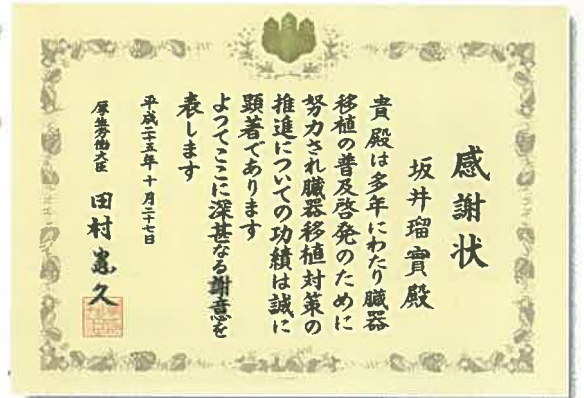 感謝状
坂井瑠實殿
貴殿は多年にわたり臓器
移植の普及啓発のために
努力され臓器移植対策の
推進についての功績は誠に
顕著であります
よってここに深甚なる謝意を
表します
平成二十五年十月二十七日
厚生労働大臣 田村憲久